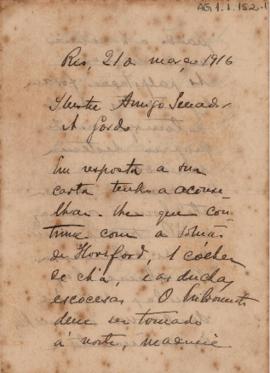 AG1.1.152-1
Rio, 21 de março, 1916
Illustre Amigo Senador
A. Gordo
Em resposta a sua
carta tenho a acouse
lhar-lhe que con
tinue com a
de Horsford, 1 colher
de chá, e as duchas
escocesas. O
deve ser tomado
á noite,